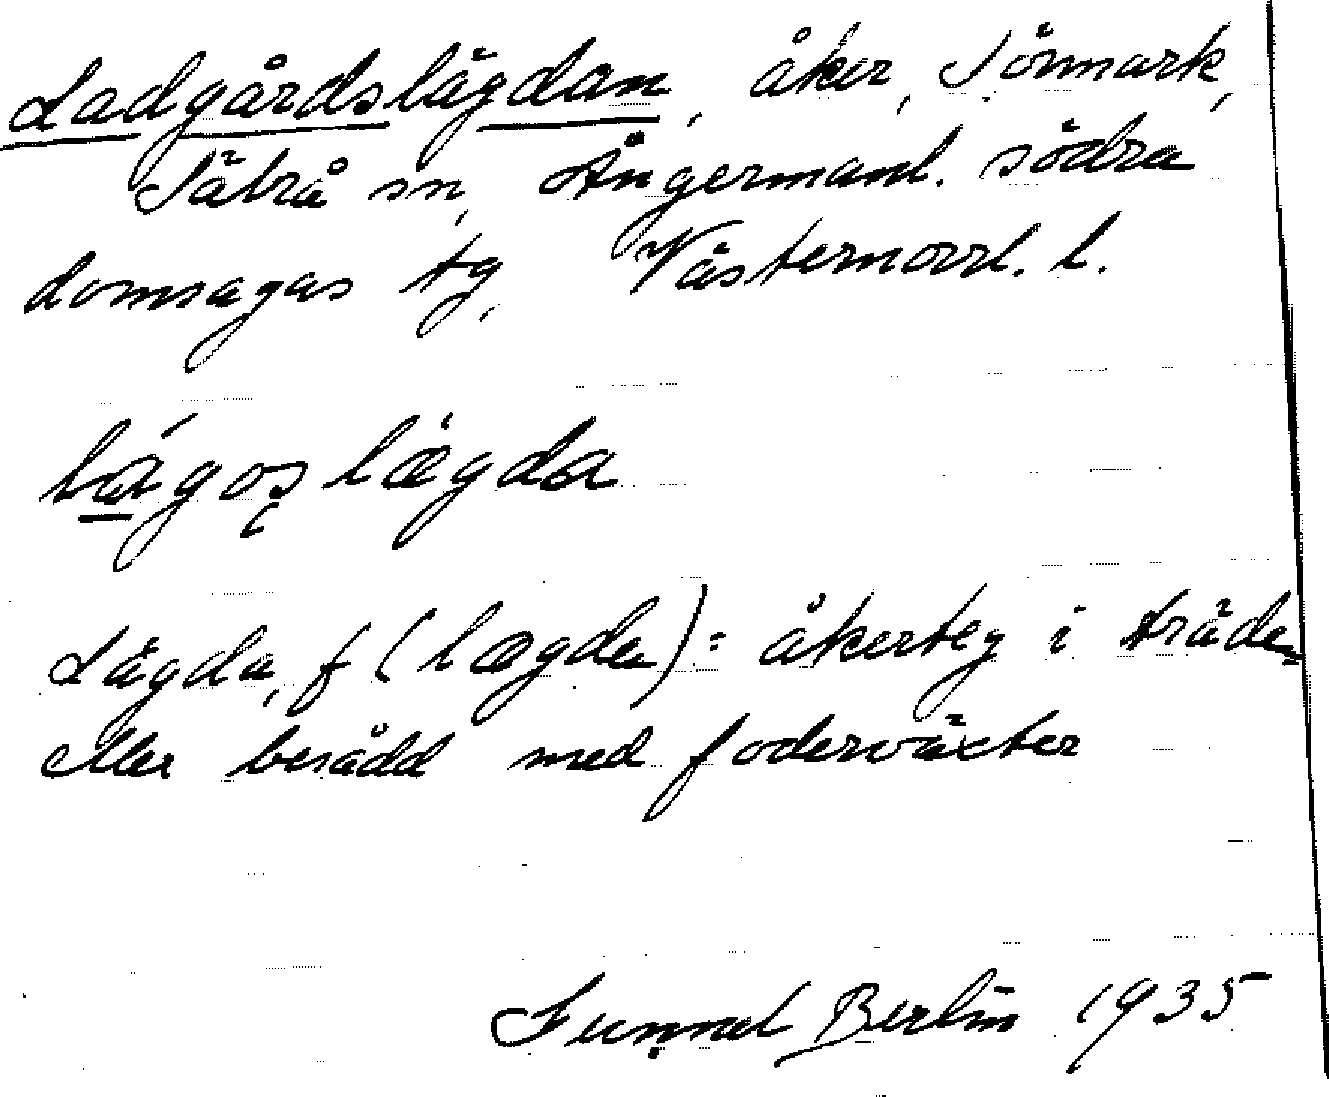 Ladgårdslägdan, åker, Sörmark,
Säbrå sn, Ångermanl. södra
domsagas tg, Västernorrl. l.
lágos̨ lægda
Lägda, f (lægda) = åkerteg i träde
eller besådd med foderväxter
Gunnel Berlin 1935